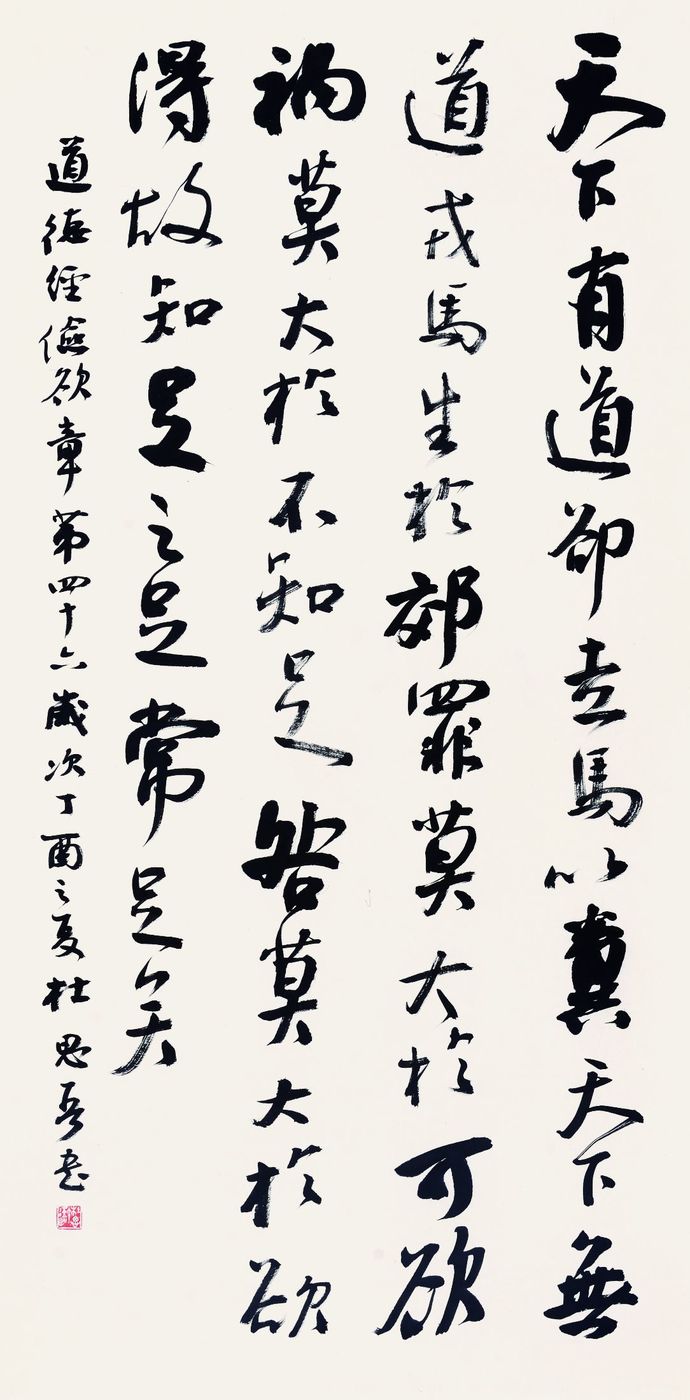 天下有道卻走馬以糞天下無
道戎馬生於郊罪莫大於可欲
禍莫大於不知足咎莫大於欲
得故知足之足常足矣
道德經儉欲章第四十六歲次丁酉之夏杜思書